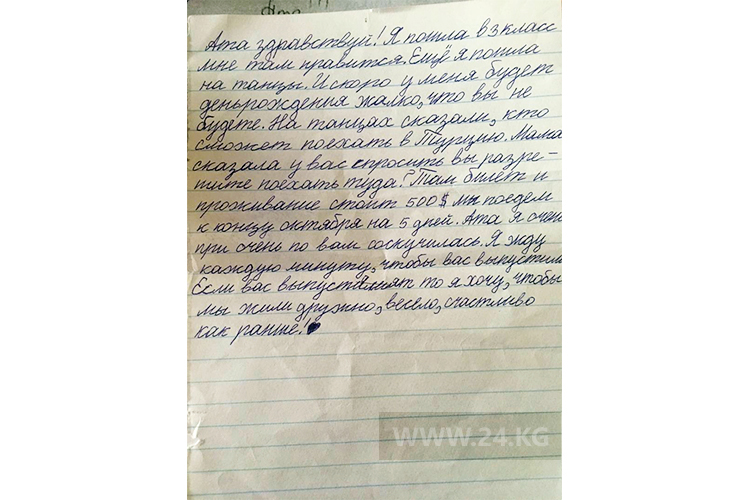 Ата
Ата здравствуй! Я пошла в 3 класс
мне там нравится. Ещё я пошла
на танцы. И скоро у меня будет
день рождения жалко, что вы не
будете. На танцах сказали, кто
сможет поехать в Турцию. Мама
сказала у вас спросить вы разре-
шите поехать туда? Там билет и
проживание стоит 500$ мы поедем
к концу октября на 5 дней. Ата я очень
при очень по вам соскучилась. Я жду
каждую минуту, чтобы вас выпустили
Если вас выпустят то я хочу, чтобы
мы жили дружно, весело, счастливо
как раньше!
WWW.24.KG